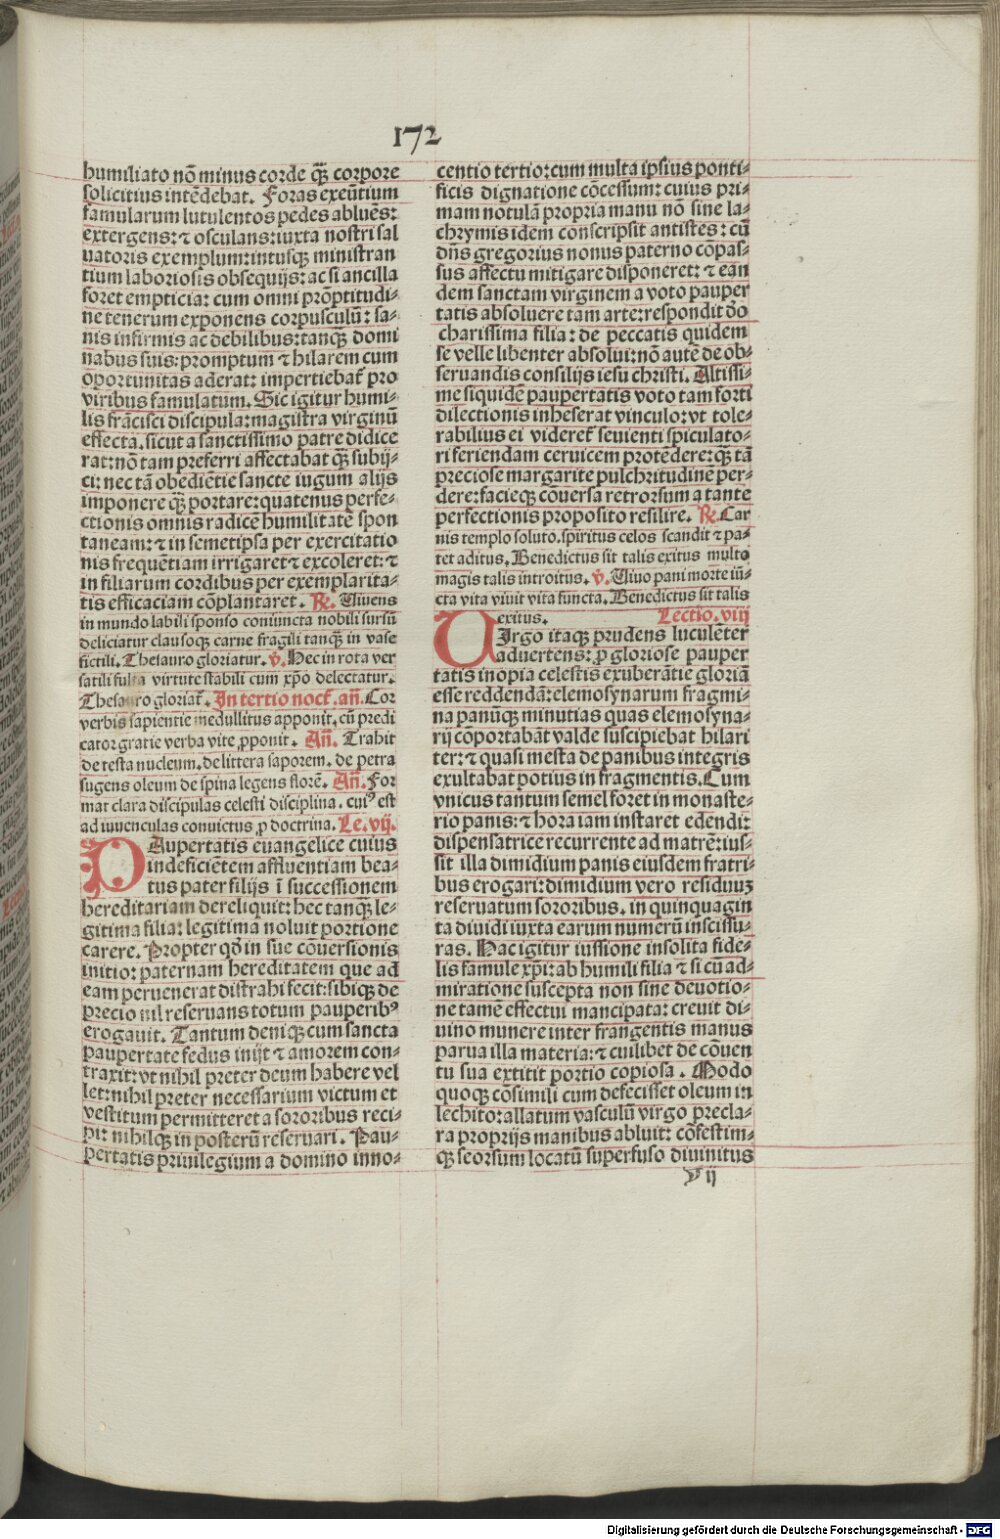 172
humiliato nō minus corde q̄ꝫ corpore
solicitius intēdebat. Foras exeūtium
famularum lutulentos pedes abluēs:
extergens: ⁊ osculans: iuxta nostri sal
uatoris exemplum: intusqꝫ ministran
tium laboriosis obsequijs: ac si ancilla
foret empticia: cum omni prōptitudi⸗
ne tenerum exponens corpusculū: sa⸗
nis infirmis ac debilibus: tanqꝫ domi
nabus suis: promptum ⁊ hilarem cum
oportunitas aderat: impertiebat̄ pro
viribus famulatum. Sic igitur humi⸗
lis frācisci discipula: magistra virginū
effecta. sicut a sanctissimo patre didice
rat: nō tam preferri affectabat q̄ꝫ subij⸗
ci: nec tā obediētie sancte iugum alijs
imponere q̄ꝫ portare: quatenus perfe⸗
ctionis omnis radicē humilitatē spon
taneam: ⁊ in semetipsa per exercitatio
nis frequētiam irrigaret ⁊ excoleret: ⁊
in filiarum cordibus per exemplarita⸗
tis efficaciam cōplantaret. ℞. Viuens
in mundo labili sponso coniuncta nobili sursū
deliciatur clausoqꝫ carne fragili tanqꝫ in vase
fictili. Thesauro gloriatur. ℣. Hec in rota ver
satili fulta virtute stabili cum xp̄o delectatur.
Thesauro gloriat̄. In tertio noct̄. añ. Cor
verbis sapientie medullitus apponit. cū predi
cator gratie verba vite ꝓponit. Añ. Trahit
de testa nucleum. de littera saporem. de petra
sugens oleum de spina legens florē. Añ. For
mat clara discipulas celesti disciplina. cuiꝰ est
ad iuuenculas conuictus ꝓ doctrina. Le. vij.
PAupertatis euangelice cuius
indeficiētem affluentiam bea⸗
tus pater filijs ī successionem
hereditariam dereliquit: hec tanqꝫ le⸗
gitima filia: legitima noluit portione
carere. Propter qd̄ in sue cōuersionis
initio: paternam hereditatem que ad
eam peruenerat distrahi fecit: sibiqꝫ de
precio nil reseruans totum pauperibꝰ
erogauit. Tantum deniqꝫ cum sancta
paupertate fedus inijt ⁊ amorem con⸗
traxit: vt nihil preter deum habere vel
let: nihil preter necessarium victum et
vestitum permitteret a sororibus reci⸗
pi: nihilqꝫ in posterū reseruari. Pau⸗
pertatis priuilegium a domino inno⸗
centio tertio: cum multa ipsius ponti⸗
ficis dignatione cōcessum: cuius pri⸗
mam notulā propria manu nō sine la⸗
chrymis idem conscripsit antistes: cū
dn̄s gregorius nonus paterno cōpas⸗
sus affectu mitigare disponeret: ⁊ ean
dem sanctam virginem a voto pauper
tatis absoluere tam arte: respondit dn̄o
charissima filia: de peccatis quidem
se velle libenter absolui: nō autē de ob⸗
seruandis consilijs iesu christi. Altissi⸗
me siquidē paupertatis voto tam forti
dilectionis inheserat vinculo: vt tole⸗
rabilius ei videret̄ seuienti spiculato⸗
ri feriendam ceruicem protēdere: q̄ꝫ tā
preciose margarite pulchritudinē per⸗
dere: facieqꝫ cōuersa retrorsum a tante
perfectionis proposito resilire. ℞. Car
nis templo soluto. spiritus celos scandit ⁊ pa⸗
tet aditus. Benedictus sit talis exitus multo
magis talis introitus. ℣. Viuo pani morte iū⸗
cta vita viuit vita functa. Benedictus sit talis
exitus. Lectio. viij
VIrgo itaqꝫ prudens luculēter
aduertens: ꝓ gloriose pauper
tatis inopia celestis exuberātie gloriā
esse reddendā: elemosynarum fragmi⸗
na panūqꝫ minutias quas elemosyna⸗
rij cōportabāt valde suscipiebat hilari
ter: ⁊ quasi mesta de panibus integris
exultabat potius in fragmentis. Cum
vnicus tantum semel foret in monaste⸗
rio panis: ⁊ hora iam instaret edendi:
dispensatrice recurrente ad matrē: ius⸗
sit illa dimidium panis eiusdem fratri⸗
bus erogari: dimidium vero residuuꝫ
reseruatum sororibus. in quinquagin
ta diuidi iuxta earum numerū inscissu⸗
ras. Hac igitur iussione insolita fide⸗
lis famule xp̄i: ab humili filia ⁊ si cū ad⸗
miratione suscepta non sine deuotio⸗
ne tamē effectui mancipata: creuit di⸗
uino munere inter frangentis manus
parua illa materia: ⁊ cuilibet de cōuen
tu sua extitit portio copiosa. Modo
quoqꝫ cōsimili cum defecisset oleum in
lechito: allatum vasculū virgo precla⸗
ra proprijs manibus abluit: cōfestim⸗
qꝫ seorsum locatū superfuso diuinitus
v ij
Digitalisierung gefördert durch die Deutsche Forschungsgemeinschaft - DFG